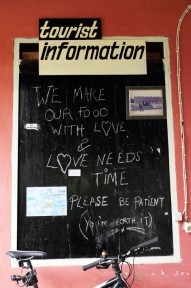 tourist
information
WE MAKE
OUR FOOD
WITH LOVE
&
LOVE NEEDS
TIME
PLEASE BE PATIENT
(you're worth it)